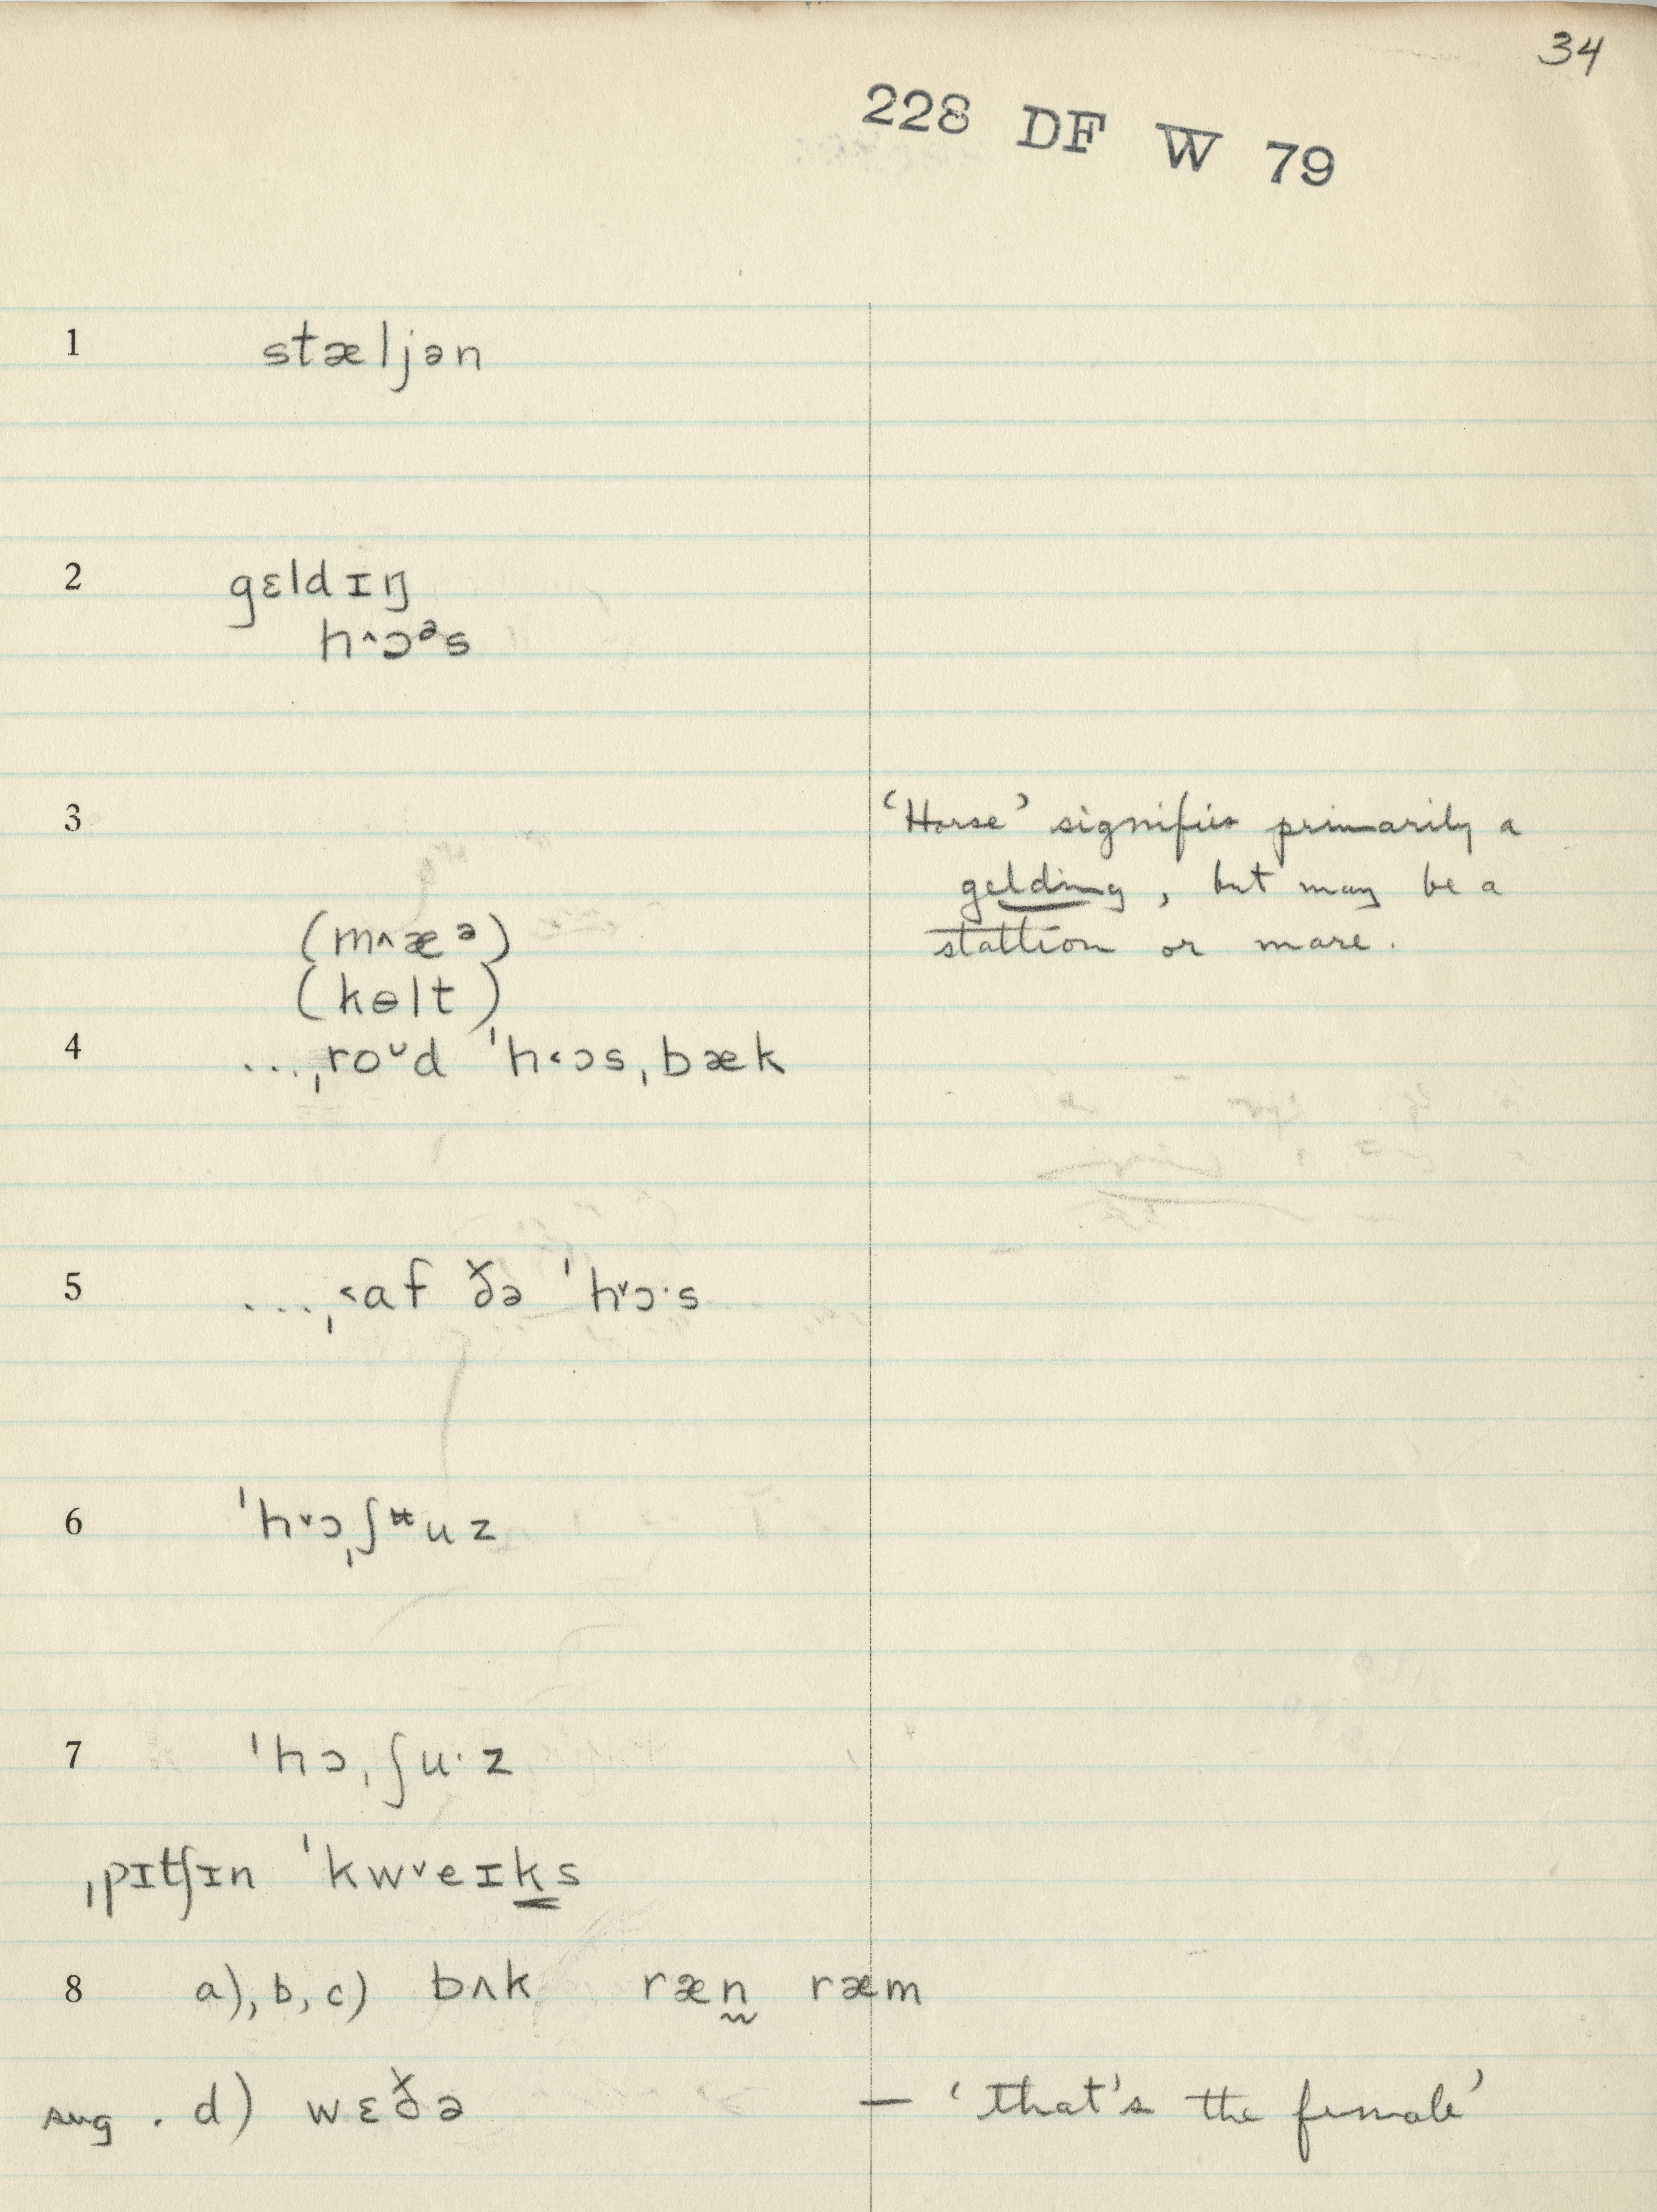 34
228 DF W 79
1 stæljən
2 gɛldɪŋ
h^ɔᵊs
3 'Horse' signifies primarily a
gelding, but may be a
stallion or mare.
(m^æᵊ)
(kɵlt)
4 ...ˌroᵁd ˈh˂ɔs,bæk
5 ...ˌ˂af ðə ˈh˅ɔ·s
6 ˈh˅ɔˌʃᵾuz
7 ˈhɔˌʃu·z
ˌpɪtʃɪn ˈkw˅eɪk̳s
8 a), b, c) bʌk ræn̰ ræm
sug. d) wɛðə — 'that's the female'